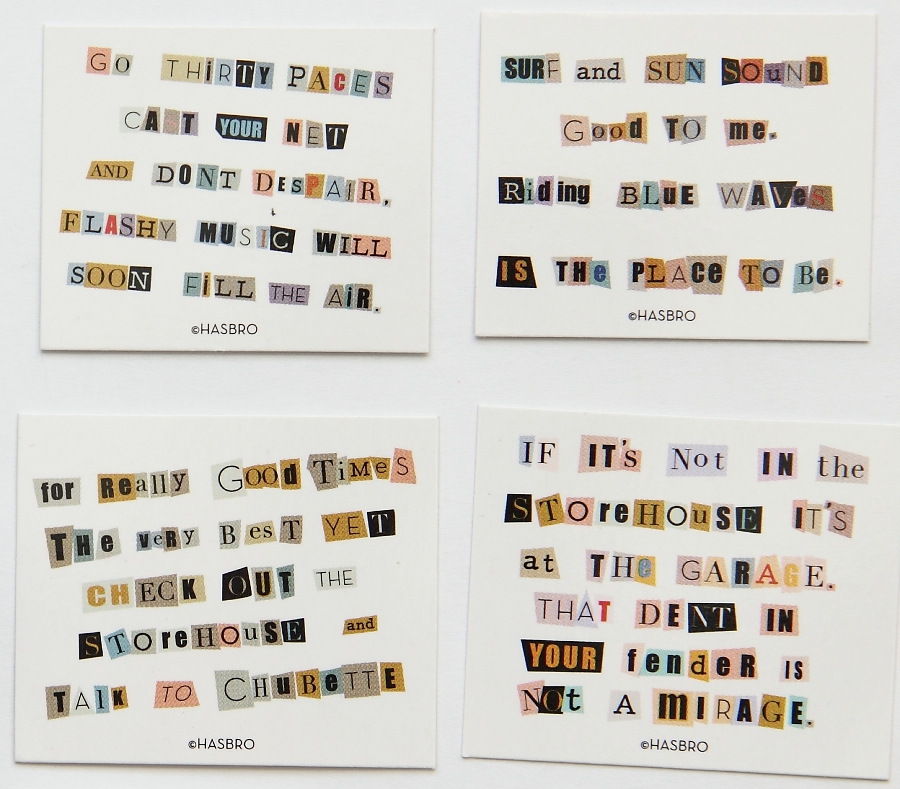 GO THiRTY PACES
CAST YOUR NET
AND DONT DEsPAIR,
FLASHY MUSIC WILL
SOON FiLL THE AiR.
©HASBRO
SURF and SUN SOuND
Good TO me.
Riding BLUE WAVeS
IS THe PLACe TO Be.
©HASBRO
for Really Good TimeS
The veRy BesT YET
CHECK OUT THE
STOreHOuSE and
TAlK TO CHuBeTTE
©HASBRO
IF IT's Not IN the
STOreHOuSE IT'S
at THe GARAGE.
THAT DENT IN
YOUR fendeR IS
NOt A mIRAGE.
©HASBRO